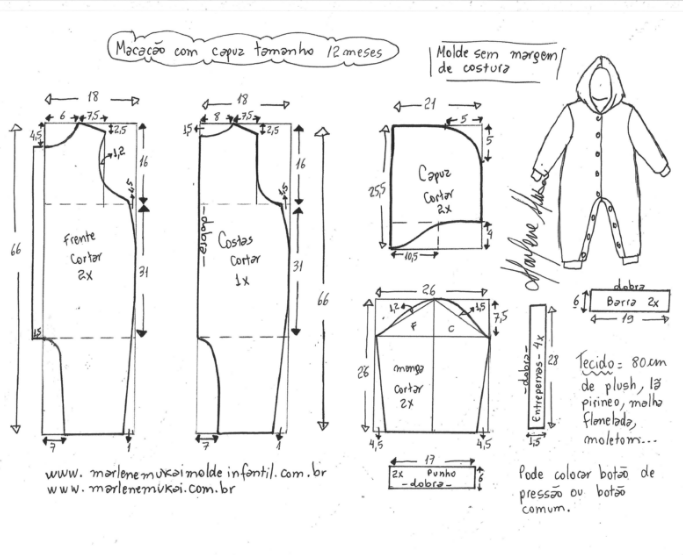 Macacão com capuz tamanho 12 meses
Molde sem margem
de costura
18
6
7,5
4,5
2,5
1,2
16
66
31
Frente
cortar
2x
1,5
7
1
18
8
7,5
1,5
2,5
16
-dobra-
Costas
cortar
1x
31
66
7
1
21
5
5
Capuz
cortar
2x
25,5
4
10,5
Marlene Mukai
26
1,2
1,5
7,5
F
C
26
manga
cortar
2x
4,5
4,5
17
2x Punho
-dobra-
6
-dobra-
Entrepernas- 4x
28
1,5
dobra
6
Barra 2x
19
Tecido = 80cm
de plush, lã
pirineo, malha
flanelada,
moletom...
Pode colocar botão de
pressão ou botão
comum.
www. marlenemukaimolde infantil.com.br
www. marlenemukai.com.br